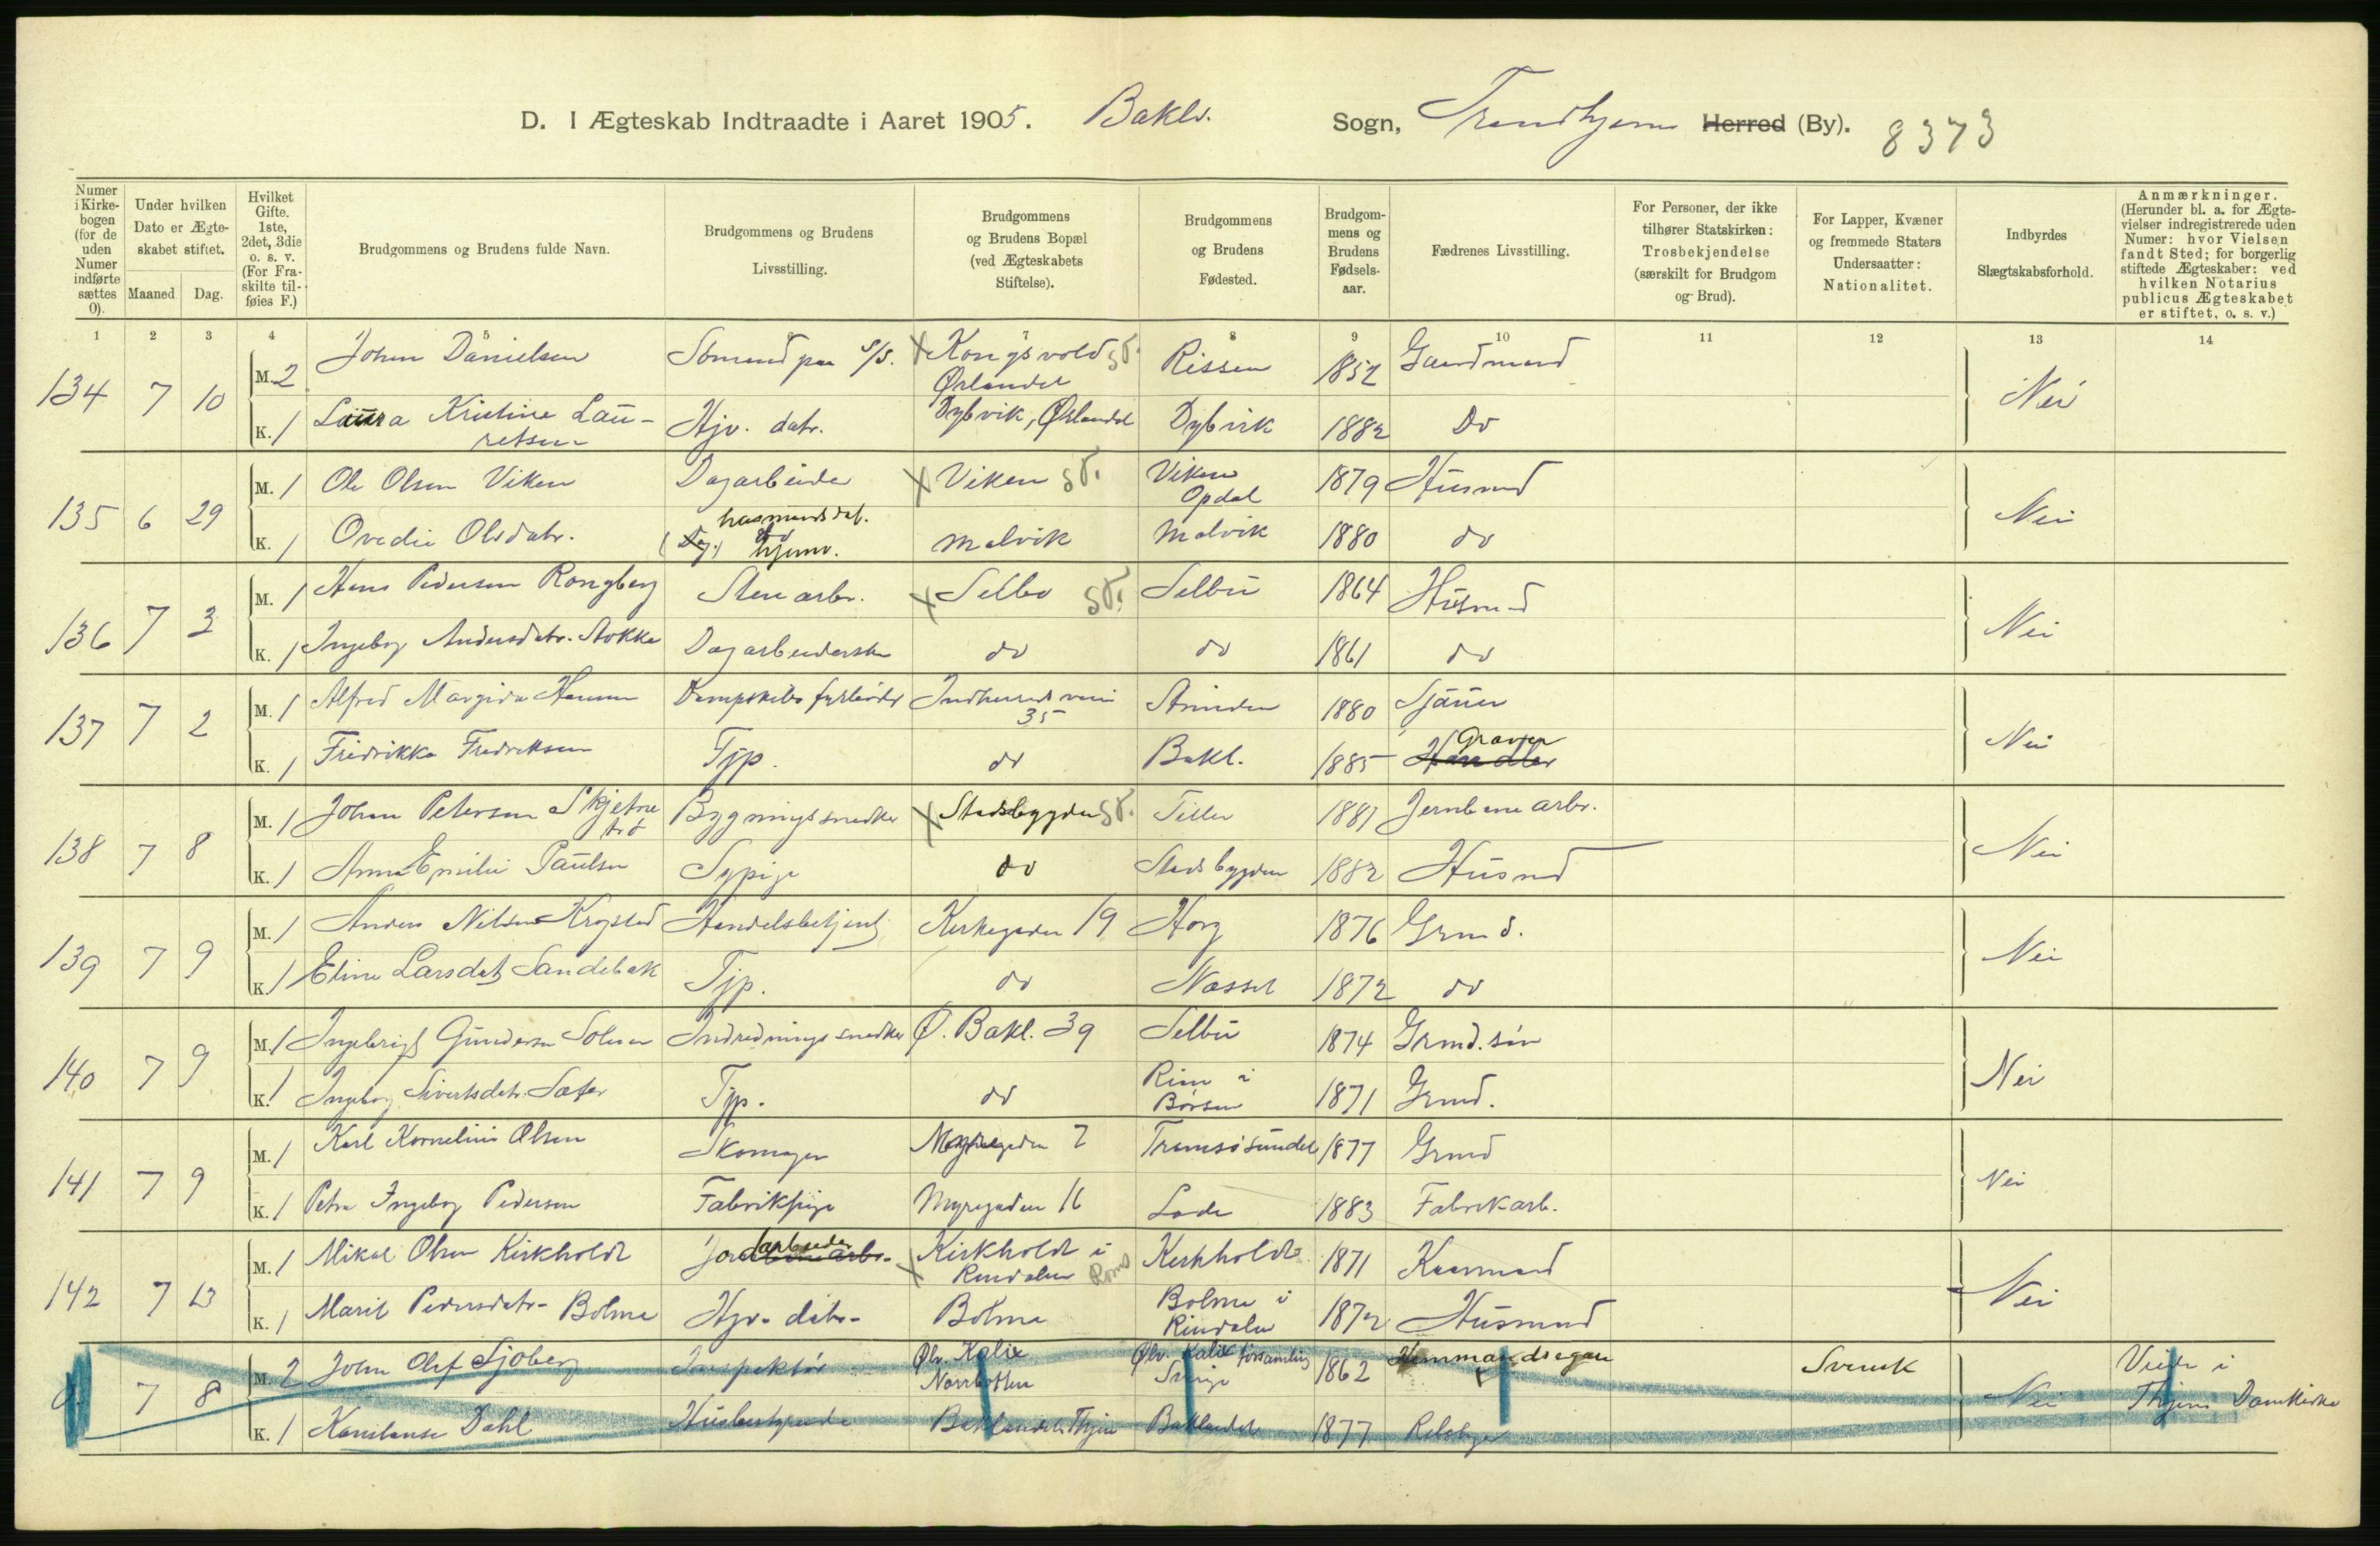 D. I Ægteskab Indtraadte i Aaret 1905. Bakl. Sogn, Trondhjem Herred (By). 8373
Numer i Kirke-bogen (for de uden Numer indførte sættes 0).
Under hvilken Dato er Ægte-skabet stiftet.
Maaned Dag.
Hvilket Gifte. 1ste, 2det, 3die o. s. v. (For Fra-skilte til-føies F.)
Brudgommens og Brudens fulde Navn.
Brudgommens og Brudens Livsstilling.
Brudgommens og Brudens Bopæl (ved Ægteskabets Stiftelse).
Brudgommens og Brudens Fødested.
Brudgom-mens og Brudens Fødsels-aar.
Fædrenes Livsstilling.
For Personer, der ikke tilhører Statskirken: Trosbekjendelse (særskilt for Brudgom og Brud).
For Lapper, Kvæner og fremmede Staters Undersaatter: Nationalitet.
Indbyrdes Slægtskabsforhold.
Anmærkninger. (Herunder bl. a. for Ægte-vielser indregistrerede uden Numer: hvor Vielsen fandt Sted; for borgerlig stiftede Ægteskaber: ved hvilken Notarius publicus Ægteskabet er stiftet, o. s. v.)
1 2 3 4 5 6 7 8 9 10 11 12 13 14
134 7 10 M. 2 Johan Danielsen Sömand paa S/S. Kongsvold Ørlandet Rissen 1852 Gaardmand Nei
K. 1 Laura Kristine Lau-retsen Hjv. datr. Dybvik, Ørlandet Dybvik 1882 Do
135 6 29 M. 1 Ole Olsen Viken Dagarbeider Viken Viken Opdal 1879 Husmd Nei
K. 1 Ovedie Olsdatr. husmandsdat. hjemv. Malvik Malvik 1880 do
136 7 3 M. 1 Hans Pedersen Rongberg Stenarbr. Selbu Selbu 1864 Husmd Nei
K. 1 Ingeborg Andersdatr. Stokke Dagarbeiderske do do 1861 do
137 7 2 M. 1 Alfred Margido Hansen Dampskibsfyrbøder Indherredsveien 35 Strinden 1880 Sjauer Nei
K. 1 Fredrikke Fredriksen Tjp. do Bakl. 1885 Handler Graver
138 7 8 M. 1 Johan Petersen Skjetne Bygningssnedker Stadsbygden Tiller 1881 Jernbanearbr. Nei
K. 1 Anna Emilie Paulsen Sypige do Stadsbygden 1882 Husmd
139 7 9 M. 1 Anders Nilsen Krogstad Handelsbetjent Kirkegaden 19 Horg 1876 Grmd. Nei
K. 1 Eline Larsdatr Sandebak Tjp. do Næsset 1872 do
140 7 9 M. 1 Ingebrigt Gundersen Solem Indredningssnedker Ø. Bakl. 39 Selbu 1874 Grmd. søn Nei
K. 1 Ingeborg Sivertsdatr. Sæter Tjp. do Rim i Børsen 1871 Grmd.
141 7 9 M. 1 Karl Kornelius Olsen Skomager Myregaden 7 Tromsøsundet 1877 Grmd Nei
K. 1 Petra Ingeborg Pedersen Fabrikpige Myregaden 16 Lade 1883 Fabrikarb.
142 7 13 M. 1 Mikal Olsen Kirkholdt Jordarbeider Kirkholdt i Rindalen Roms Kirkholdt 1871 Kaarmand Nei
K. 1 Marit Pedersdatr. Bolme Hjv. datr. Bolme Bolme i Rindalen 1872 Husmand
0. 7 8 M. 2 John Olof Sjöberg Inspektör Ølv. Kalix Norrbotten Ølv. Kalix församling Sverige 1862 Hemmandsegare Svensk Nei Viede i Thjems Domkirke
K. 1 Konstanse Dahl Husbestyrende Baklandet Thjem Baklandet 1877 Rebslager